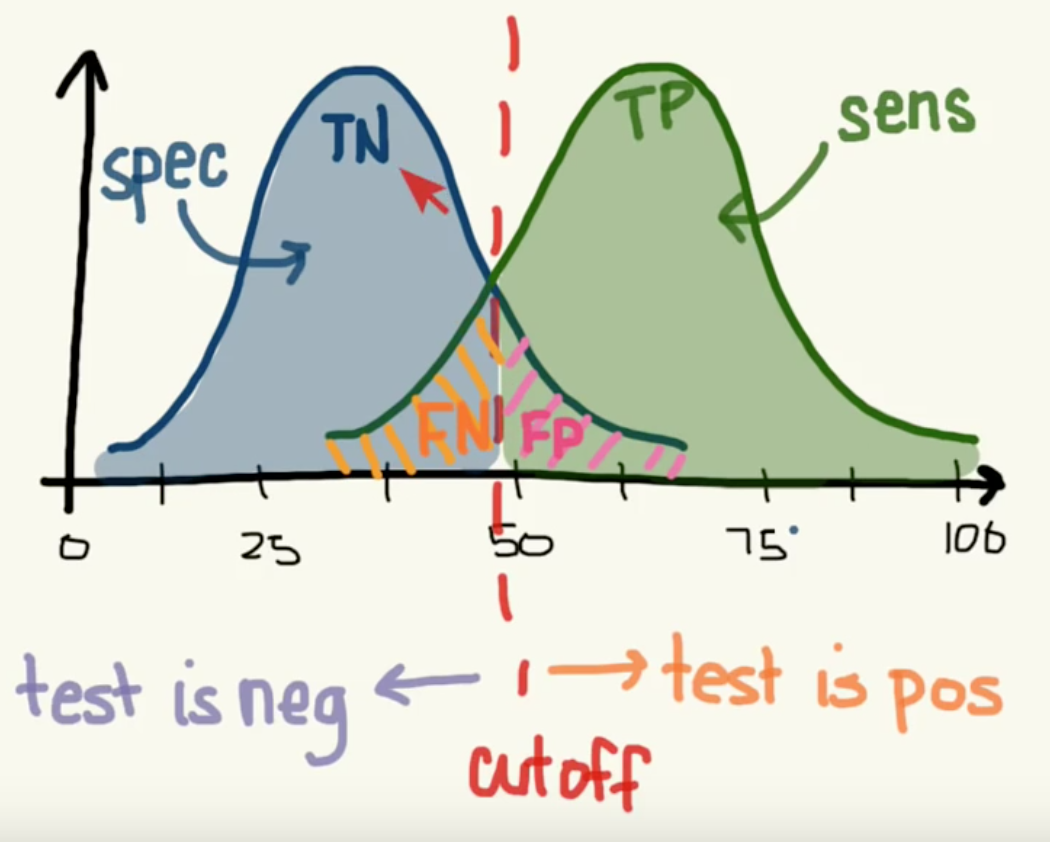 TN
TP
sens
spec
FN
FP
0 25 50 75 100
test is neg
test is pos
cutoff